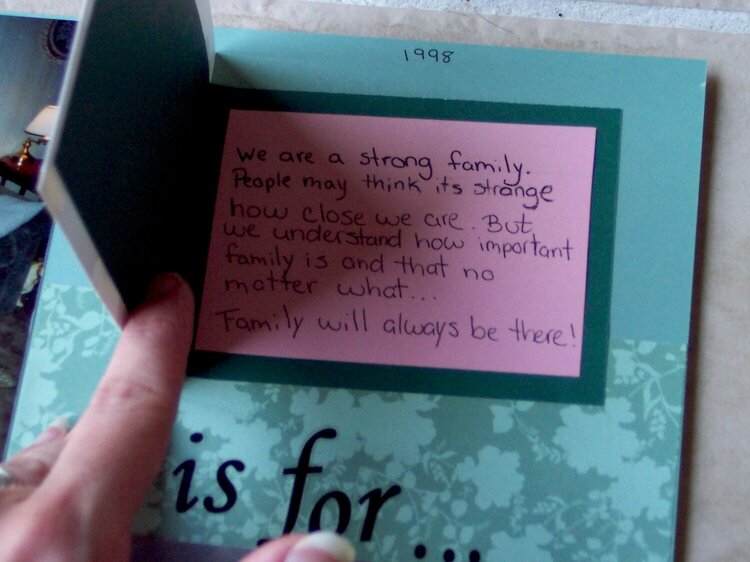 1998
We are a strong family.
People may think its strange
how close we are. But
we understand how important
family is and that no
matter what...
Family will always be there!
is for...